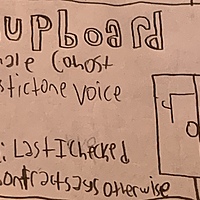 upboard
nale Cohost
stictone voice
: Last I checked
ontract says otherwise